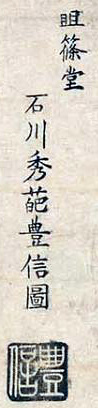 篠堂
石川秀葩豊信圖
豊信